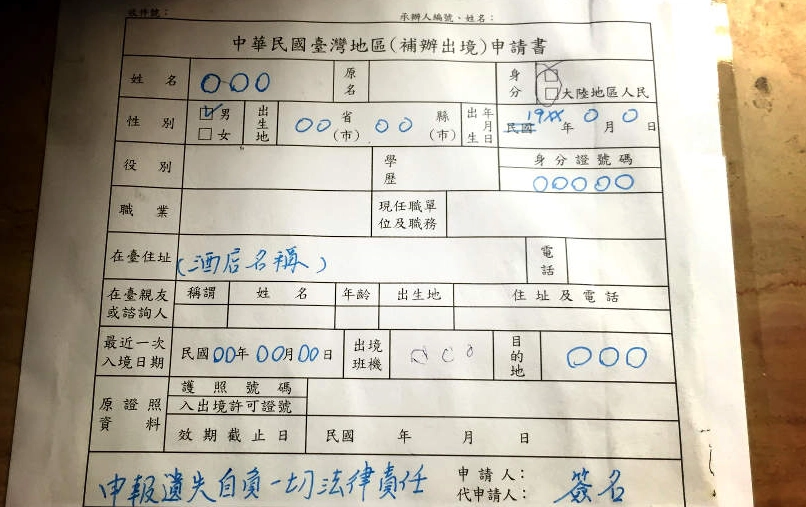 收件號： 承辦人編號、姓名：
中華民國臺灣地區(補辦出境)申請書
姓名 〇〇〇 原名 身分 □ □大陸地區人民
性別 ☑男 □女 出生地 〇〇省(市) 〇〇縣(市) 出生年月日 民國 19XX年〇月〇日
役別 學歷 身分證號碼
〇〇〇〇〇
職業 現任職單位及職務
在臺住址 (酒店名稱) 電話
在臺親友或諮詢人 稱謂 姓名 年齡 出生地 住址及電話
最近一次入境日期 民國00年00月00日 出境班機 〇〇〇 目的地 〇〇〇
原證照資料 護照號碼
入出境許可證號
效期截止日 民國 年 月 日
申報遺失自負一切法律責任 申請人：
代申請人： 簽名